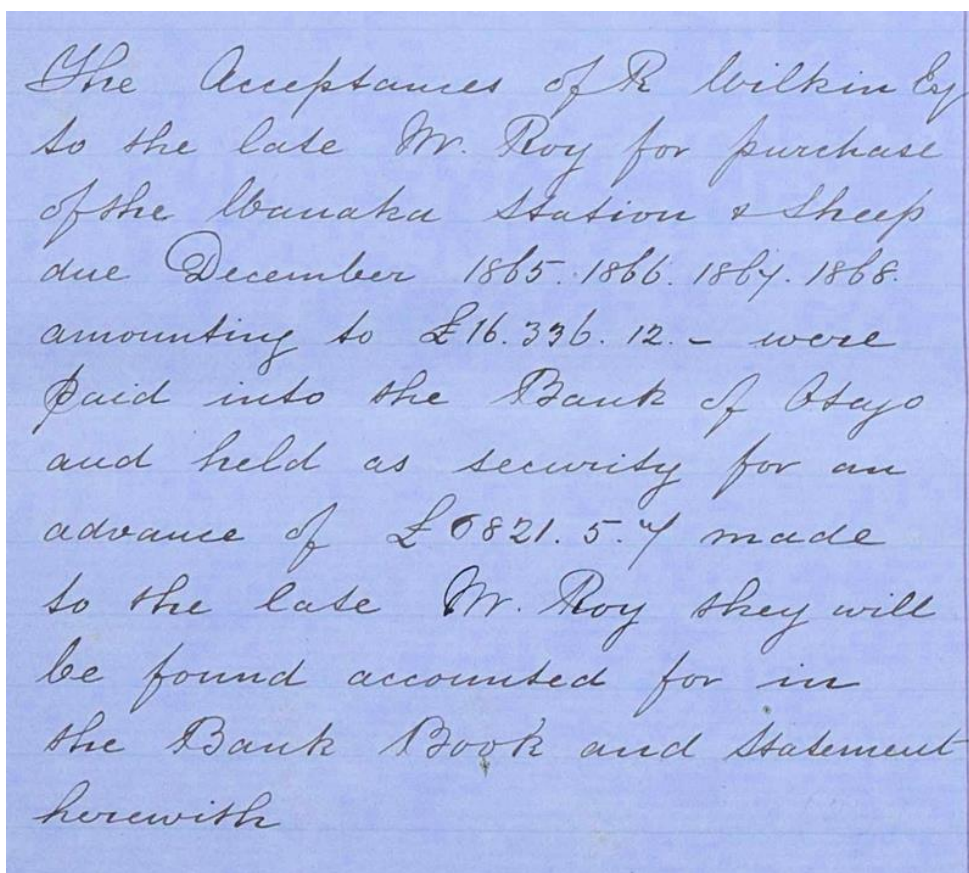 The Acceptances of R Wilkin Esq
to the late Mr. Roy for purchase
of the Wanaka Station & Sheep
due December 1865. 1866. 1867. 1868.
amounting to £16.336.12.– were
paid into the Bank of Otago
and held as security for an
advance of £6821.5.7 made
to the late Mr. Roy they will
be found accounted for in
the Bank Book and Statement
herewith